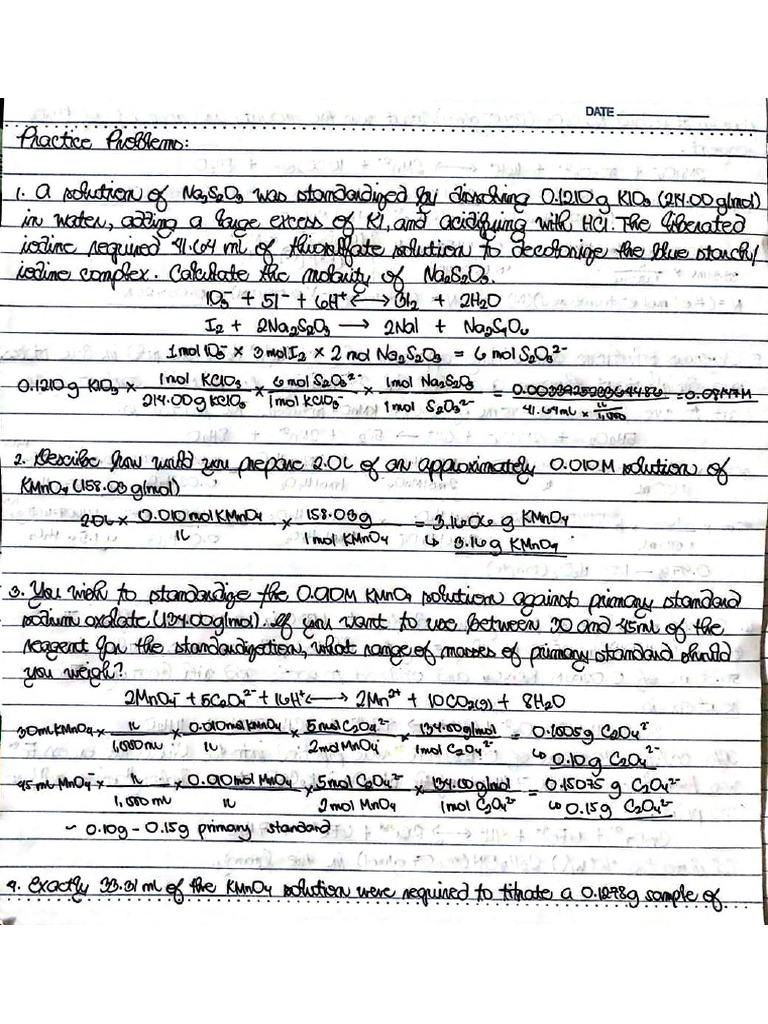 DATE
Practice Problems:
1. A solution of Na₂S₂O₃ was standardized by dissolving 0.1210 g KIO₃ (214.00 g/mol)
in water, adding a large excess of KI, and acidifying with HCl. The liberated
iodine required 41.64 ml of thiosulfate solution to decolorize the blue starch/
iodine complex. Calculate the molarity of Na₂S₂O₃.
IO₃⁻ + 5I⁻ + 6H⁺ ⟷ 3I₂ + 2H₂O
I₂ + 2Na₂S₂O₃ ⟶ 2NaI + Na₂S₄O₆
1 mol IO₃⁻ × 3 mol I₂ × 2 mol Na₂S₂O₃ = 6 mol S₂O₃²⁻
0.1210g KIO₃ × 1 mol KClO₃ / 214.00 g KClO₃ × 6 mol S₂O₃²⁻ / 1 mol KClO₃⁻ × 1 mol Na₂S₂O₃ / 1 mol S₂O₃²⁻ = / 41.64 mL × 1L / 1,000 = 0.08147M
2. Describe how would you prepare 2.0L of an approximately 0.010M solution of
KMnO₄ (158.03 g/mol)
2.0L × 0.010 mol KMnO₄ / 1L × 158.03g / 1 mol KMnO₄ = 3.1606 g KMnO₄
↳ 3.16 g KMnO₄
3. You wish to standardize the 0.010M KMnO₄ solution against primary standard
sodium oxalate (134.00 g/mol). If you want to use between 30 and 45 ml of the
reagent for the standardization, what range of masses of primary standard should
you weigh?
2MnO₄⁻ + 5C₂O₄²⁻ + 16H⁺ ⟷ 2Mn²⁺ + 10CO₂(g) + 8H₂O
30 mL KMnO₄ × 1L / 1,000 mL × 0.010 mol KMnO₄ / 1L × 5 mol C₂O₄²⁻ / 2 mol MnO₄⁻ × 134.00 g/mol / 1 mol C₂O₄²⁻ = 0.1005 g C₂O₄²⁻
↳ 0.10 g C₂O₄²⁻
45 mL MnO₄⁻ × 1L / 1,000 mL × 0.010 mol MnO₄ / 1L × 5 mol C₂O₄²⁻ / 2 mol MnO₄ × 134.00 g/mol / 1 mol C₂O₄²⁻ = 0.15075 g C₂O₄²⁻
↳ 0.15 g C₂O₄²⁻
~ 0.10g - 0.15g primary standard
4. Exactly 33.31 ml of the KMnO₄ solution were required to titrate a 0.1278g sample of